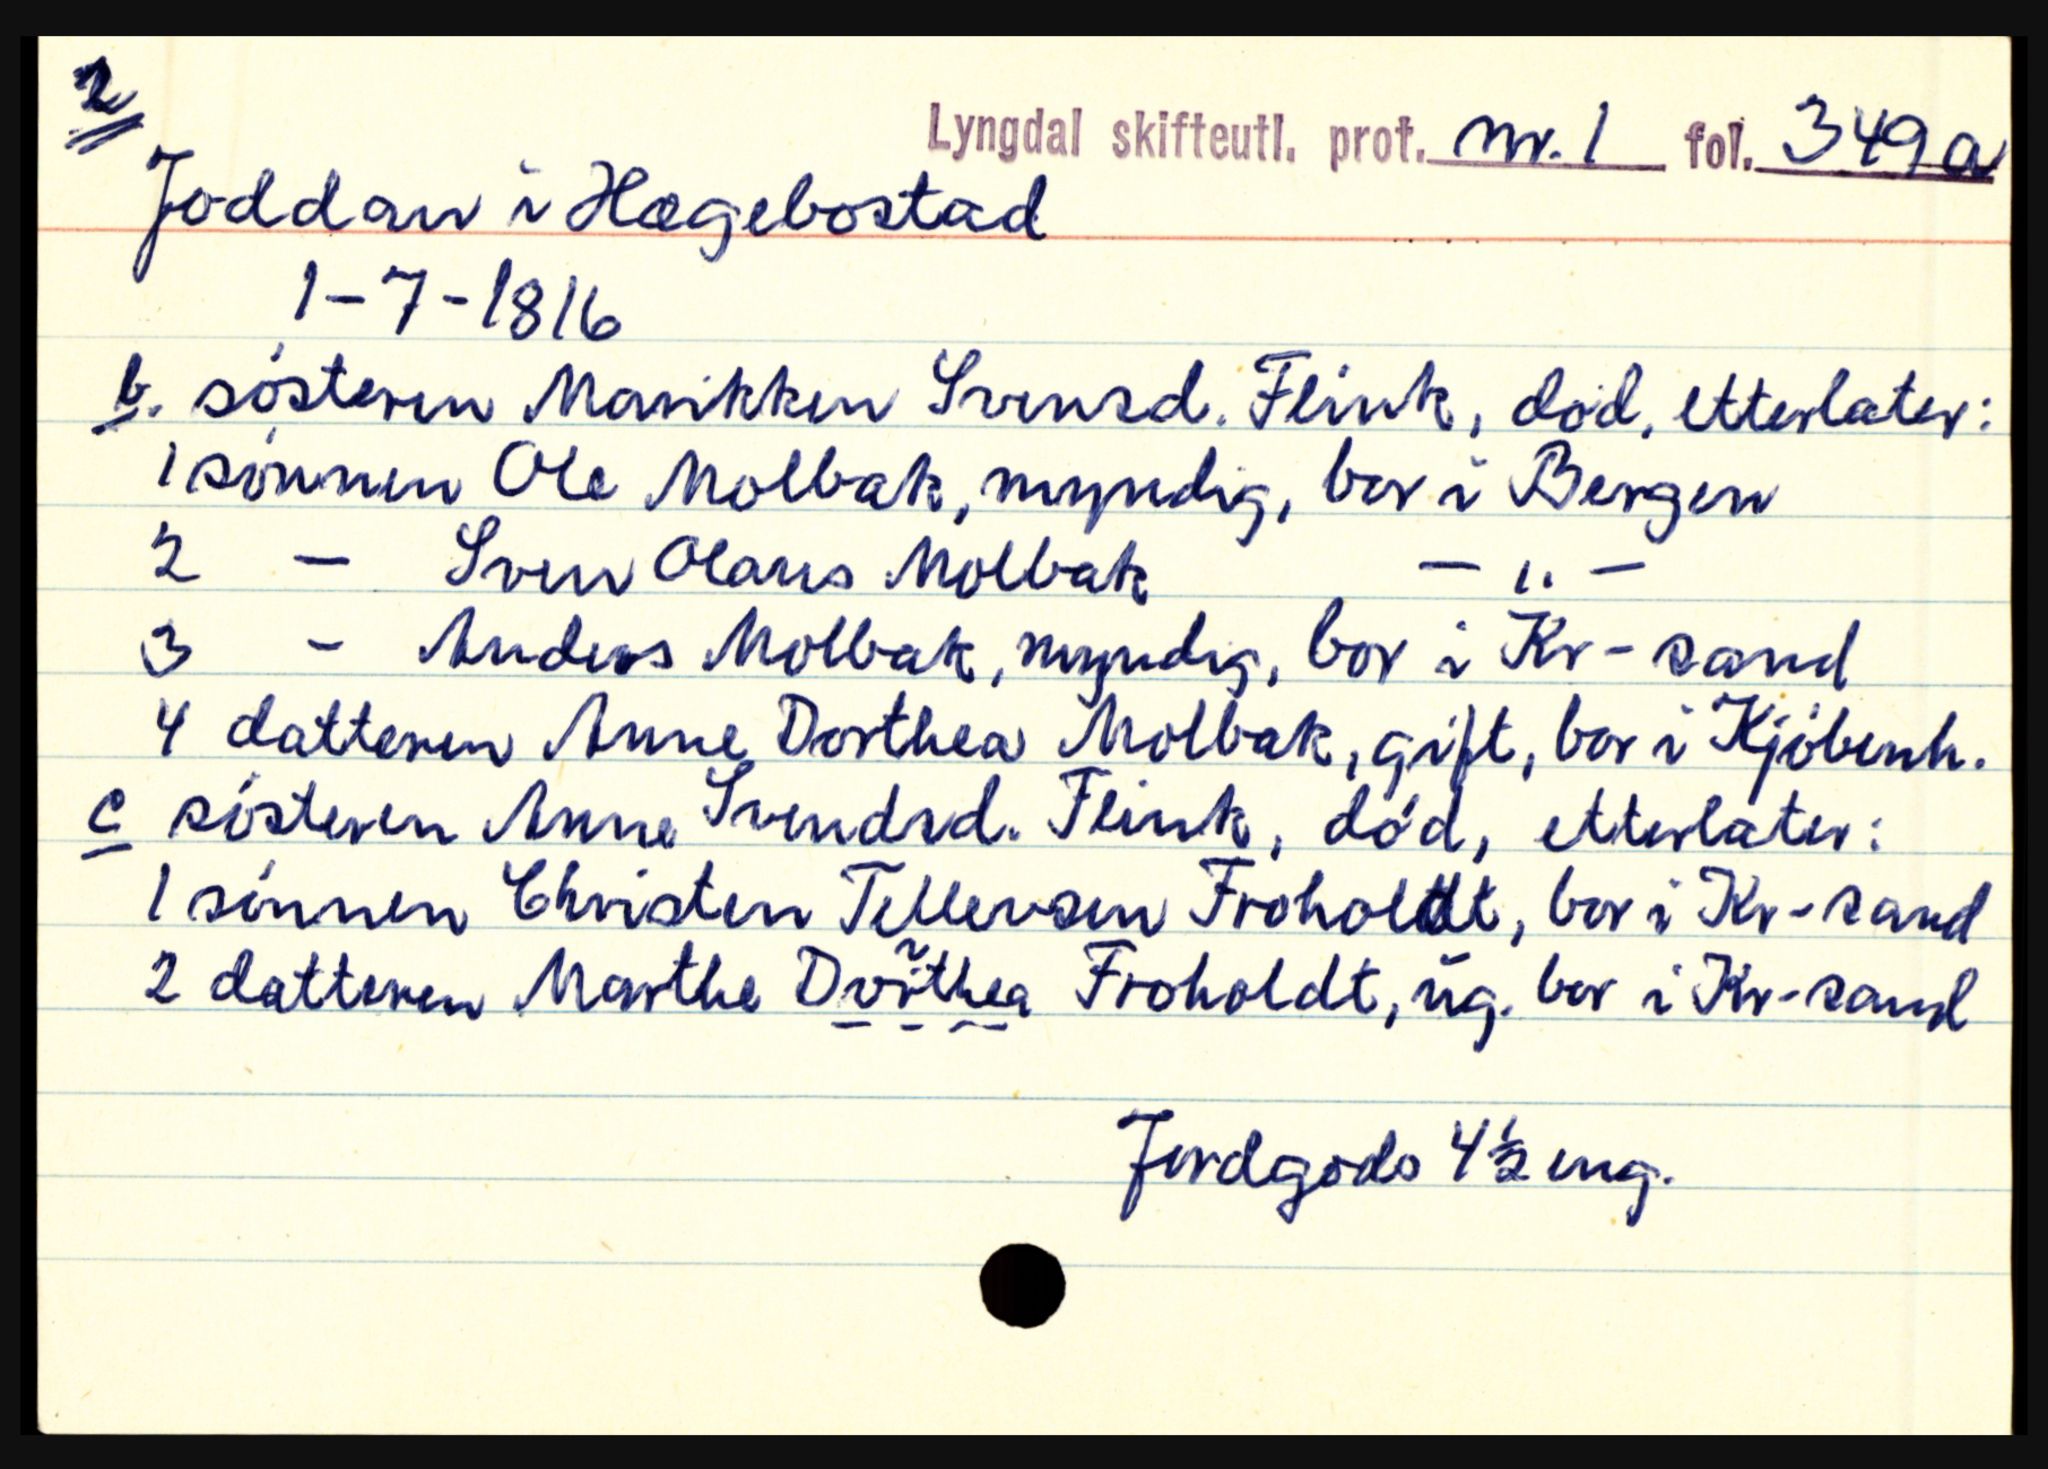 2
Lyngdal skifteutl. prot. nr. 1 fol. 349a
Joddan i Hægebostad
1-7-1816
b. søsteren Marikken Svensd. Flink, død, etterlater:
1 sønnen Ole Molbak, myndig, bor i Bergen
2 — Sven Olaus Molbak — " —
3 - Anders Molbak, myndig, bor i Kr-sand
4 datteren Anne Dorthea Molbak, gift, bor i Kjøbenh.
c søsteren Anne Svendsd. Flink, død, etterlater:
1 sønnen Christen Tellevsen Froholdt, bor i Kr-sand
2 datteren Marthe Dorthea Froholdt, ug. bor i Kr-sand
Jordgods 4 1/2 eng.